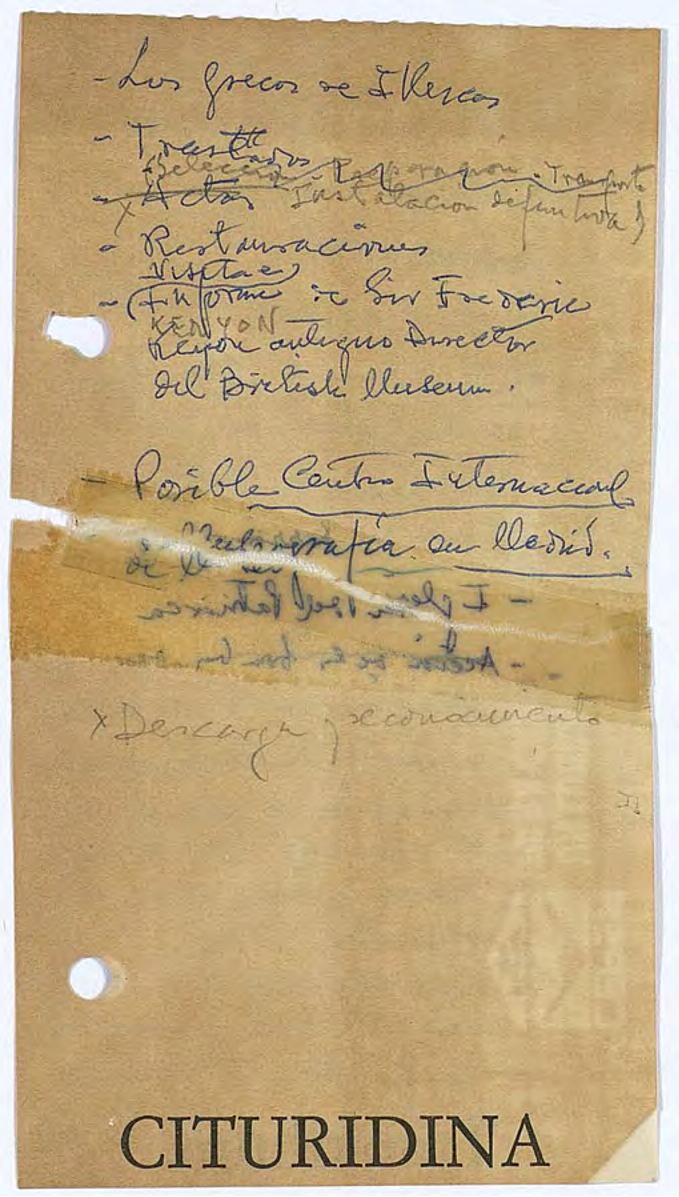 - Los grecos de Illescas
- Trastados
(Selección - Preparación - Transporte
x Actas Instalacion definitiva)
- Restauraciones
Visita e
- (Informe de Sir Frederic
KENYON
Kenyon antiguo Director
del British Museum.
- Posible Centro Internacional
en Madrid.
- Iglesia del Patriarca
x Descarga y reconocimiento
CITURIDINA